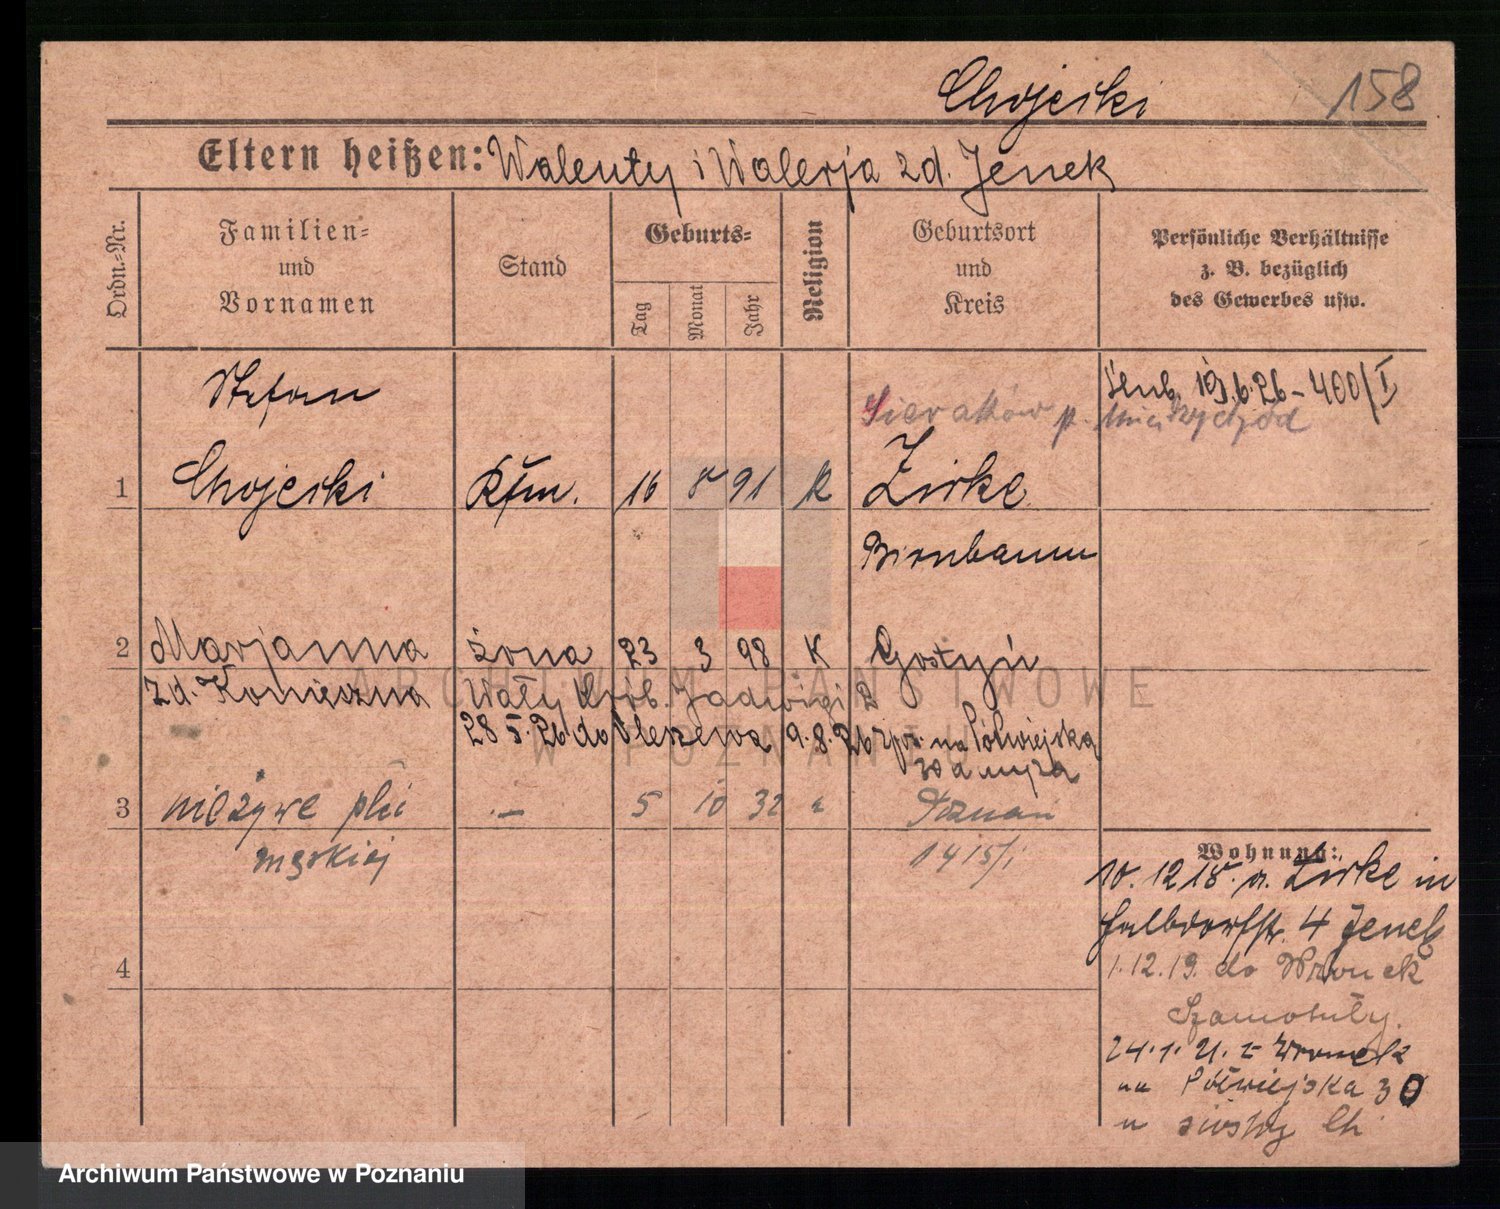 Chojecki 158
Eltern heißen: Walenty i Walerja zd. Jenek
Ordn.-Nr.
Familien-
und
Vornamen
Stand
Geburts-
Tag
Monat
Jahr
Religion
Geburtsort
und
Kreis
Persönliche Verhältnisse
z. B. bezüglich
des Gewerbes usw.
Stefan
ślub. 10.6.26 – 400/I
Sieraków p. Międzychód
1 Chojecki Kfm. 16 8 91 K Zirke
Birnbaum
2 Marjanna żona 23 3 98 K Gostyń
zd. Konieczna Wały Król. Jadwigi 2
28 5. 26 do 9. 8. 26 na Półwiejską
30 a męża
3 nieżywe płci — 5 10 32 " Poznań
męskiej 1415/I
Wohnung:
10. 12 18. a. Zirke in
Halbdorfstr. 4 Jenek
4
1.12.19. do Wronek
Szamotuły.
24.1.21. z Wronek
na Półwiejska 30
u siostry Ch
ARCHIWUM PAŃSTWOWE
W POZNANIU
Archiwum Państwowe w Poznaniu